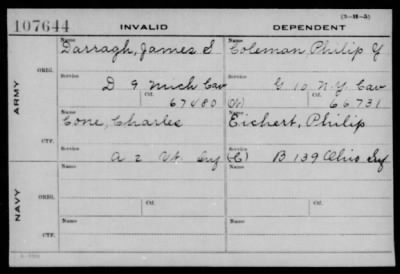 (3-H-5)
107644 INVALID DEPENDENT
ARMY
NAVY
ORIG.
CTF.
ORIG.
CTF.
Name Name
Darragh, James S Coleman, Philip Y
Service Service
D 9 Mich Cav G 10 N.Y. Cav
Ctf. Ctf.
67480 (W) 66.731
Name Name
Cone, Charles Eichert, Philip
Service Service
A 2 Vt. Inf (C) B 139 Ohio Inf
Name Name
Service Ctf. Service Ctf.
Name Name